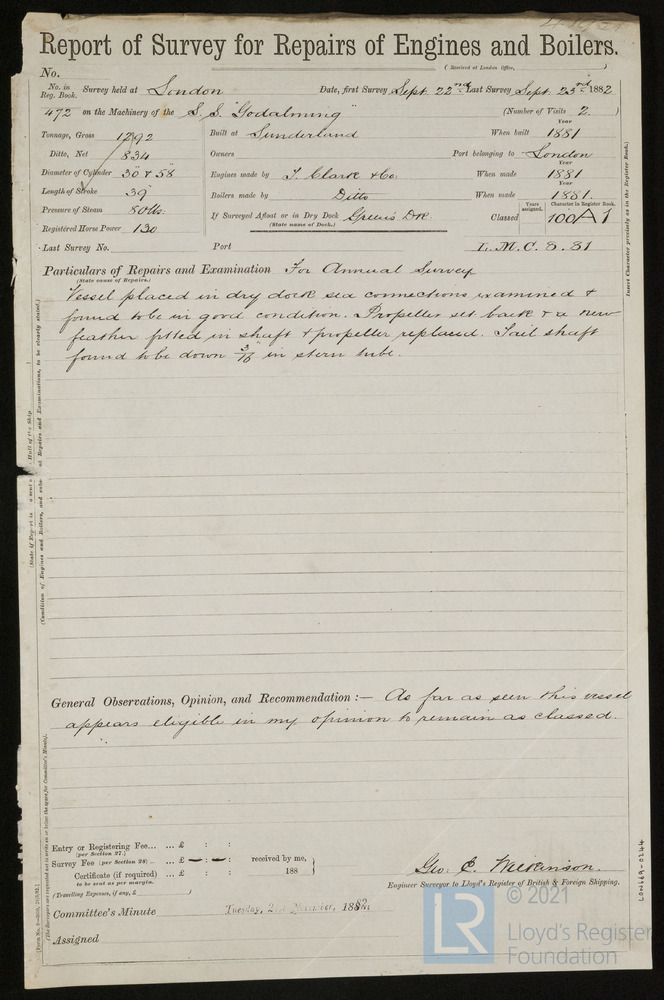 Report of Survey for Repairs of Engines and Boilers.
No. (Received at London Office, )
No. in Reg. Book. Survey held at London Date, first Survey Sept. 22nd Last Survey Sept. 23rd 1882
472 on the Machinery of the S.S. "Godalming" (Number of Visits 2. )
Tonnage, Gross 1292 Built at Sunderland When built Year 1881
Ditto, Net 834 Owners Port belonging to London
Diameter of Cylinder 30" & 58" Engines made by J. Clark & Co. When made Year 1881
Length of Stroke 39" Boilers made by Ditto When made Year 1881.
Pressure of Steam 80 lbs. If Surveyed Afloat or in Dry Dock Green's D.K. Classed Years assigned. Character in Register Book. 100A1
(State name of Dock.)
Registered Horse Power 130
Last Survey No. Port L.M.C. 8.81
Particulars of Repairs and Examination For Annual Survey
(State cause of Repairs.)
Vessel placed in dry dock sea connections examined &
found to be in good condition. Propeller set back & a new
feather fitted in shaft & propeller replaced. Tail shaft
found to be down 3/16" in stern tube.
General Observations, Opinion, and Recommendation :— As far as seen this vessel
appears eligible in my opinion to remain as classed.
Entry or Registering Fee... ... £ : :
(per Section 27.)
Survey Fee (per Section 28) ... ... £ — : — : received by me,
Certificate (if required) ... £ : : 188
to be sent as per margin.
(Travelling Expenses, if any, £ )
Geo. C. Wilkinson.
Engineer Surveyor to Lloyd's Register of British & Foreign Shipping.
Committee's Minute Tuesday, 1882.
Assigned
Insert Character precisely as in the Register Book.)
LON669-0244
© 2021
LR Lloyd's Register
Foundation